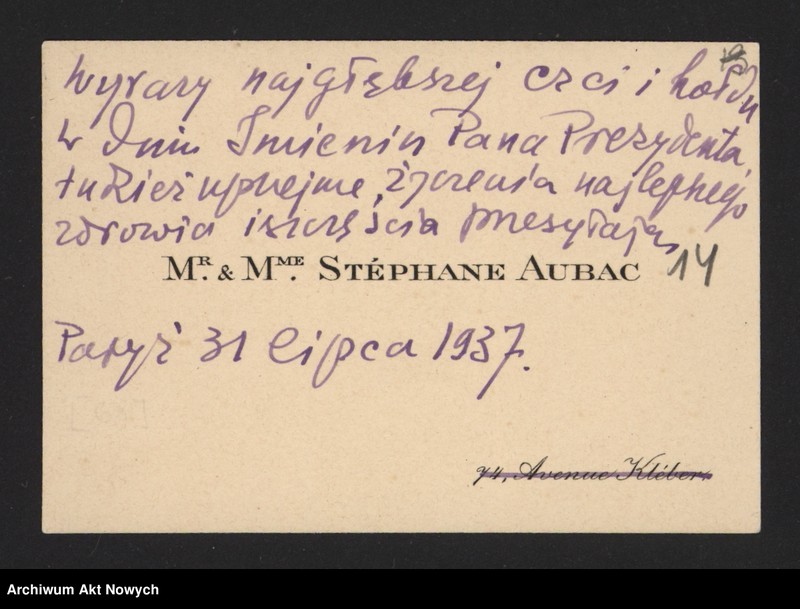 Wyrazy najgłębszej czci i hołdu
w dniu Imienin Pana Prezydenta,
tudzież uprzejme, życzenia najlepszego
zdrowia i szczęścia przesyłają
MR. & MME. STÉPHANE AUBAC
14
Paryż 31 lipca 1937.
74, Avenue Kléber.
Archiwum Akt Nowych